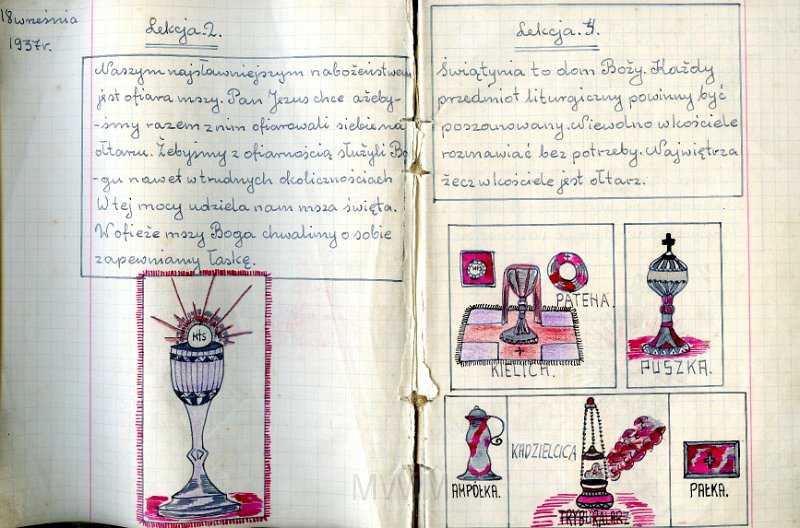 18 września
1937r.
Lekcja 2.
Naszym najsławniejszym nabożeństwem
jest ofiara mszy. Pan Jezus chce ażeby-
-śmy razem z nim ofiarowali siebie na
ołtaru. Żebyśmy z ofiarnością służyli Bo
-gu nawet w trudnych okolicznościach
W tej mocy udziela nam msza święta.
W ofieże mszy Boga chwalimy o sobie
zapewniamy łaskę.
IHS
Lekcja 3.
Świątynia to dom Boży. Każdy
przedmiot liturgiczny powinny być
poszonowany. Niewolno w kościele
rozmawiać bez potrzeby. Najwiętrza
żecz w kościele jest ołtarz.
IHS
PATENA.
KIELICH.
PUSZKA.
AMPÓŁKA.
KADZIELCICA
TRYBULARZ
PAŁKA.
MWM